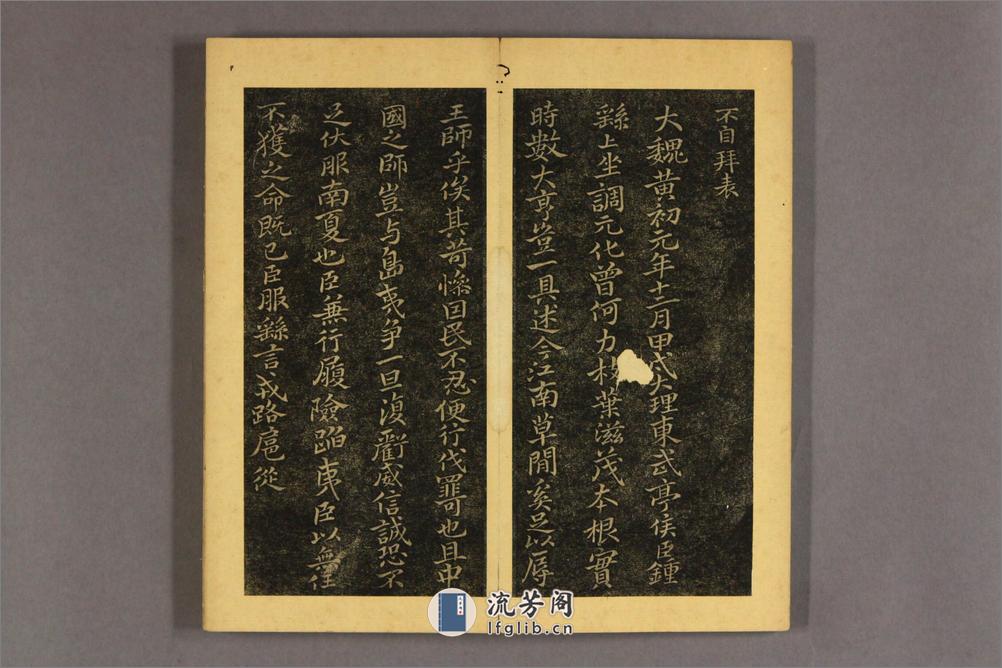 不自拜表
大魏黄初元年十二月甲戌大理東武亭侯臣鍾
繇上坐調元化曾何力枝葉滋茂本根實
時數大亨豈一具述今江南草閒奚足以辱
王師乎俟其苛慘囙民不忍便行伐罪可也且中
國之師豈与島夷争一旦復虧威信誠恐不
足伏服南夏也臣兼行履險蹈夷臣以無任
不獲之命既已臣服繇言戎路扈從
流芳阁
lfglib.cn